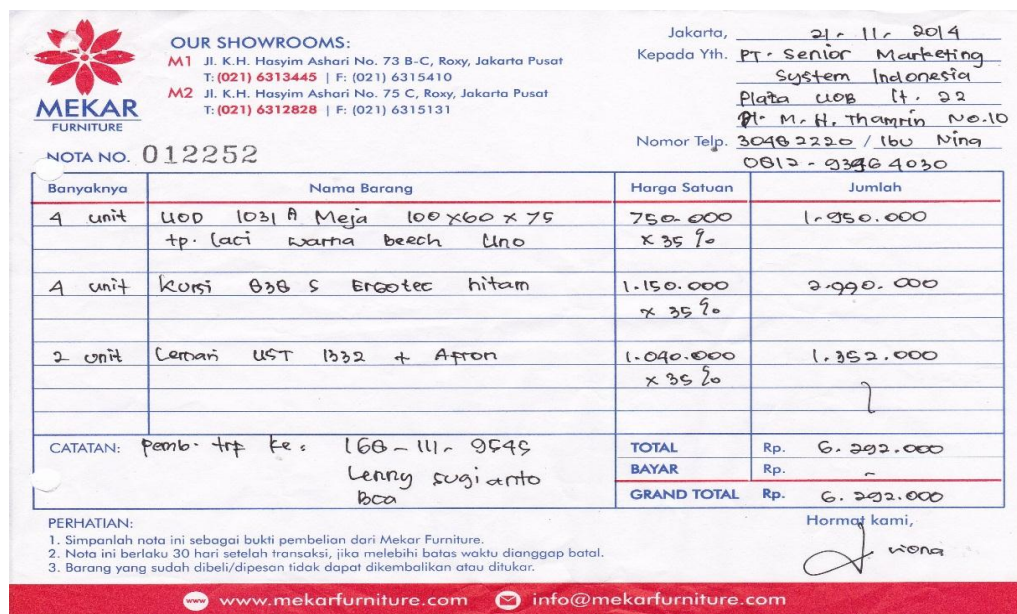 MEKAR
FURNITURE
OUR SHOWROOMS:
M1 Jl. K.H. Hasyim Ashari No. 73 B-C, Roxy, Jakarta Pusat
T: (021) 6313445 | F: (021) 6315410
M2 Jl. K.H. Hasyim Ashari No. 75 C, Roxy, Jakarta Pusat
T: (021) 6312828 | F: (021) 6315131
Jakarta, 21 - 11 - 2014
Kepada Yth. PT. Senior Marketing
System Indonesia
Plaza UOB lt. 22
Jl. M. H. Thamrin No.10
Nomor Telp. 30482220 / Ibu Nina
0812 - 93464030
NOTA NO. 012252
Banyaknya Nama Barang Harga Satuan Jumlah
4 unit UOD 1031 A Meja 100 x 60 x 75 750.000 1.950.000
tp. laci warna beech Uno x 35 %
4 unit Kursi 838 S Ergotec hitam 1.150.000 2.990.000
x 35 %
2 unit Lemari UST 1332 + 1.040.000 1.352.000
x 35 %
CATATAN: Pemb. trf ke: 168 - 111 - 9545
Lenny Sugianto
BCA
TOTAL Rp. 6.292.000
BAYAR Rp. -
GRAND TOTAL Rp. 6.292.000
PERHATIAN:
1. Simpanlah nota ini sebagai bukti pembelian dari Mekar Furniture.
2. Nota ini berlaku 30 hari setelah transaksi, jika melebihi batas waktu dianggap batal.
3. Barang yang sudah dibeli/dipesan tidak dapat dikembalikan atau ditukar.
Hormat kami,
viona
www www.mekarfurniture.com info@mekarfurniture.com